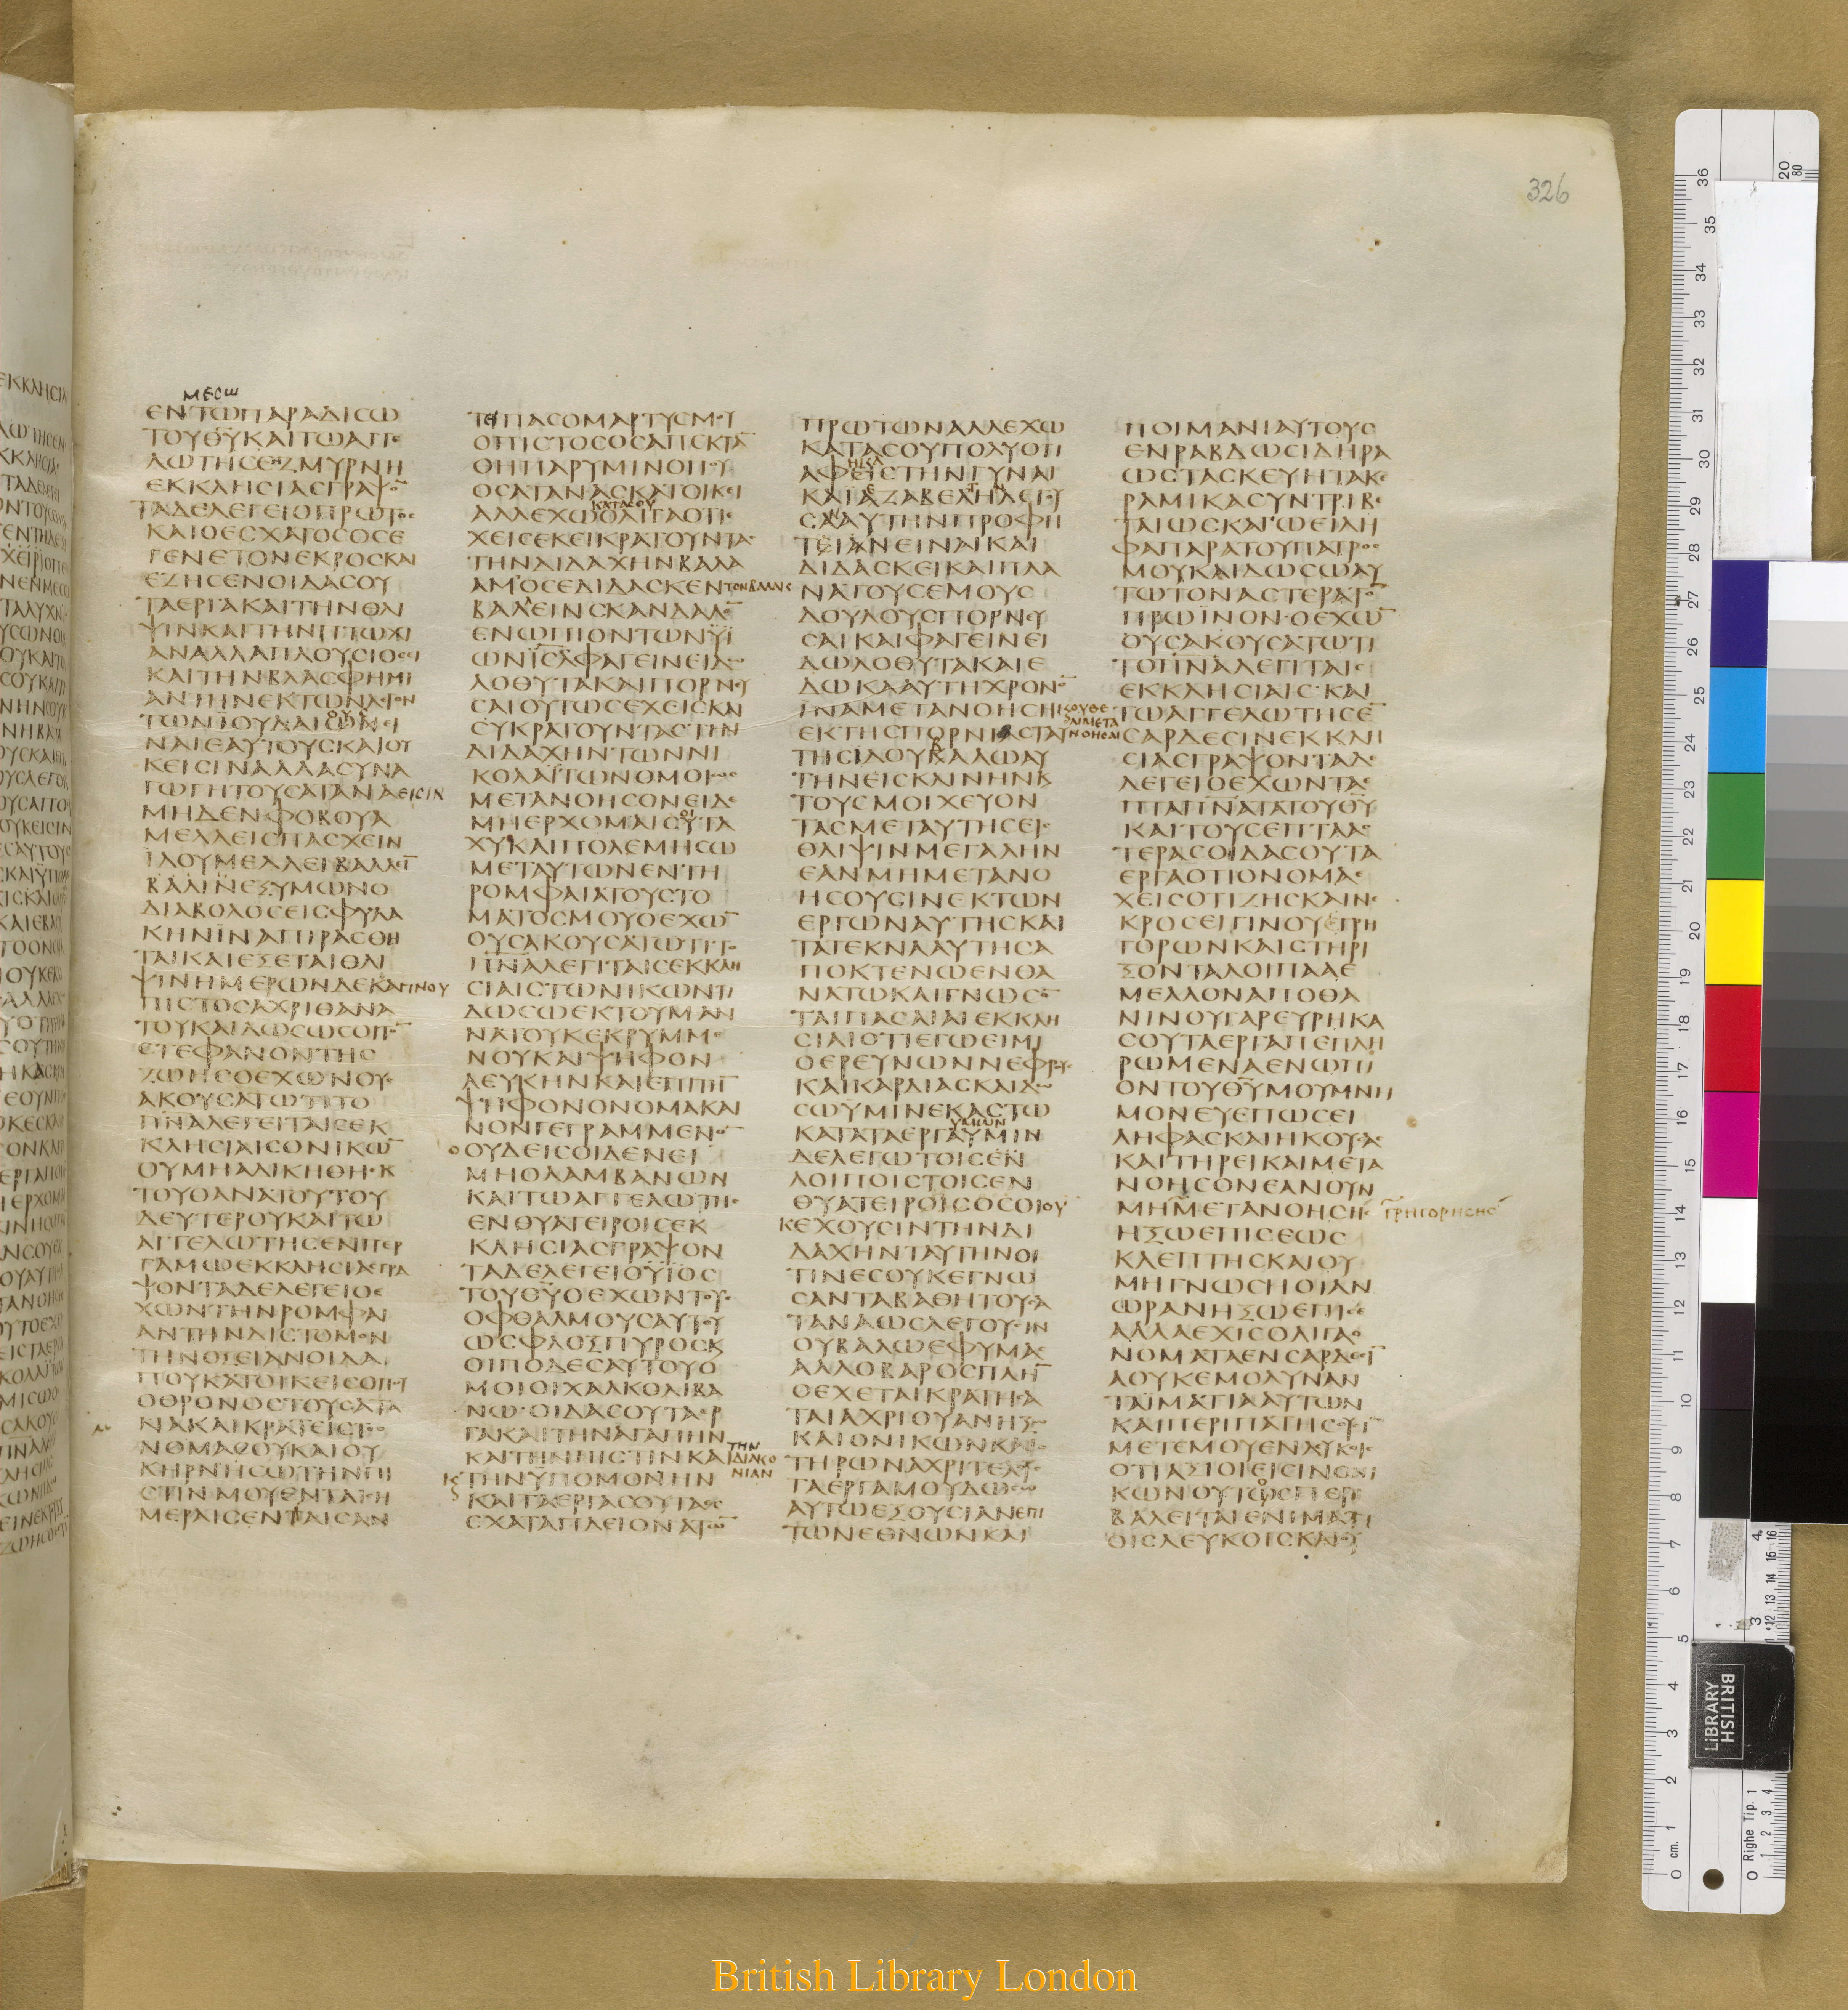 326
ΜΕCΩ
ΕΝΤΩΠΑΡΑΔΙCΩ
ΤΟΥΘΥΚΑΙΤΩΑΓΓΕ
ΛΩΤΗCΕΝΖΜΥΡΝΗ
ΕΚΚΛΗCΙΑCΓΡΑΨΟ̅
ΤΑΔΕΛΕΓΕΙΟΠΡΩΤΟC
ΚΑΙΟΕCΧΑΤΟCΟCΕ
ΓΕΝΕΤΟΝΕΚΡΟCΚΑΙ
ΕΖΗCΕΝΟΙΔΑCΟΥ
ΤΑΕΡΓΑΚΑΙΤΗΝΘΛΙ
ΨΙΝΚΑΙΤΗΝΠΤΩΧΙ
ΑΝΑΛΛΑΠΛΟΥCΙΟCΕΙ
ΚΑΙΤΗΝΒΛΑCΦΗΜΙ
ΑΝΤΗΝΕΚΤΩΝΛΕΓΟΝ
ΤΩΝΪΟΥΔΑΙΩΝΕΙ
ΝΑΙΕΑΥΤΟΥCΚΑΙΟΥ
ΚΕΙCΙΝΑΛΛΑCΥΝΑ
ΓΩΓΗΤΟΥCΑΤΑΝΑΕΙCΙΝ
ΜΗΔΕΝΦΟΒΟΥΑ
ΜΕΛΛΕΙCΠΑCΧΕΙΝ
ΪΔΟΥΜΕΛΛΕΙΒΑΛΛΕΙ̅
ΒΑΛΙΝΕΞΥΜΩΝΟ
ΔΙΑΒΟΛΟCΕΙCΦΥΛΑ
ΚΗΝΪΝΑΠΙΡΑCΘΗ
ΤΑΙΚΑΙΕΞΕΤΑΙΘΛΙ
ΨΙΝΗΜΕΡΩΝΔΕΚΑΓΙΝΟΥ
ΠΙCΤΟCΑΧΡΙΘΑΝΑ
ΤΟΥΚΑΙΔΩCΩCΟΙΤΟ̅
CΤΕΦΑΝΟΝΤΗC
ΖΩΗCΟΕΧΩΝΟΥC
ΑΚΟΥCΑΤΩΤΙΤΟ
ΠΝΑΛΕΓΕΙΤΑΙCΕΚ
ΚΛΗCΙΑΙCΟΝΙΚΩ̅
ΟΥΜΗΑΔΙΚΗΘΗΕΚ
ΤΟΥΘΑΝΑΤΟΥΤΟΥ
ΔΕΥΤΕΡΟΥΚΑΙΤΩ
ΑΓΓΕΛΩΤΗCΕΝΠΕΡ
ΓΑΜΩΕΚΚΛΗCΙΑCΓΡΑ
ΨΟΝΤΑΔΕΛΕΓΕΙΟΕ
ΧΩΝΤΗΝΡΟΜΦΑΙ
ΑΝΤΗΝΔΙCΤΟΜΟΝ
ΤΗΝΟΞΕΙΑΝΟΙΔΑ
ΠΟΥΚΑΤΟΙΚΕΙCΟΠΟΥ
ΟΘΡΟΝΟCΤΟΥCΑΤΑ
ΝΑΚΑΙΚΡΑΤΕΙCΤΟ
ΝΟΜΑCΟΥΚΑΙΟΥ
ΚΗΡΝΗCΩΤΗΝΠΙ
CΤΙΝΜΟΥΕΝΤΑΙCΗ
ΜΕΡΑΙCΕΝΤΑΙCΑΝ
ΤΕΙΠΑCΟΜΑΡΤΥCΜΟΥ
ΟΠΙCΤΟCΟCΑΠΕΚΤΑ̅
ΘΗΠΑΡΥΜΙΝΟΠΟΥ
ΟCΑΤΑΝΑCΚΑΤΟΙΚΕΙ
ΚΑΤΑCΟΥ
ΑΛΛΕΧΩΟΛΙΓΑΟΤΙΕ
ΧΕΙCΕΚΕΙΚΡΑΤΟΥΝΤΑC
ΤΗΝΔΙΔΑΧΗΝΒΑΛΑ
ΑΜΟCΕΔΙΔΑCΚΕΝΤΟΝΒΑΛΑΚ
ΒΑΛΕΙΝCΚΑΝΔΑΛΟ̅
ΕΝΩΠΙΟΝΤΩΝΥΪ
ΩΝΙCΑΦΑΓΕΙΝΕΙΔΩ
ΛΟΘΥΤΑΚΑΙΠΟΡΝΕΥ
CΑΙΟΥΤΩCΕΧΕΙCΚΑΙ
CΥΚΡΑΤΟΥΝΤΑCΤΗΝ
ΔΙΔΑΧΗΝΤΩΝΝΙ
ΚΟΛΑΪΤΩΝΟΜΟΙΩC
ΜΕΤΑΝΟΗCΟΝΕΙΔΕ
ΜΗΕΡΧΟΜΑΙCΟΙΤΑ
ΧΥΚΑΙΠΟΛΕΜΗCΩ
ΜΕΤΑΥΤΩΝΕΝΤΗ
ΡΟΜΦΑΙΑΤΟΥCΤΟ
ΜΑΤΟCΜΟΥΟΕΧΩ̅
ΟΥCΑΚΟΥCΑΤΩΤΙΤΟ
ΠΝΑΛΕΓΙΤΑΙCΕΚΚΛΗ
CΙΑΙCΤΩΝΙΚΩΝΤΙ
ΔΩCΩΕΚΤΟΥΜΑΝ
ΝΑΤΟΥΚΕΚΡΥΜΜΕ
ΝΟΥΚΑΙΨΗΦΟΝ
ΛΕΥΚΗΝΚΑΙΕΠΙΤΗ̅
ΨΗΦΟΝΟΝΟΜΑΚΑΙ
ΝΟΝΓΕΓΡΑΜΜΕΝΟ̅
ΟΟΥΔΕΙCΟΙΔΕΝΕΙ
ΜΗΟΛΑΜΒΑΝΩΝ
ΚΑΙΤΩΑΓΓΕΛΩΤΗC
ΕΝΘΥΑΤΕΙΡΟΙCΕΚ
ΚΛΗCΙΑCΓΡΑΨΟΝ
ΤΑΔΕΛΕΓΕΙΟΥΪΟC
ΤΟΥΘΥΟΕΧΩΝΤΟΥC
ΟΦΘΑΛΜΟΥCΑΥΤΟΥ
ΩCΦΛΟΞΠΥΡΟCΚ
ΟΙΠΟΔΕCΑΥΤΟΥΟ
ΜΟΙΟΙΧΑΛΚΟΛΙΒΑ
ΝΩΟΙΔΑCΟΥΤΑΕΡ
ΓΑΚΑΙΤΗΝΑΓΑΠΗΝ
ΚΑΙΤΗΝΠΙCΤΙΝΚΑΙΤΗΝ ΔΙΑΚΟΝΙΑΝ
ΤΗΝΫΠΟΜΟΝΗΝ
ΚΑΙΤΑΕΡΓΑCΟΥΤΑΕ
CΧΑΤΑΠΛΕΙΟΝΑΤΩ̅
ΠΡΩΤΩΝΑΛΛΕΧΩ
ΚΑΤΑCΟΥΠΟΛΥΟΤΙ
ΑΦΕΙCΤΗΝΓΥΝΑΙ
ΚΑΙΑΖΑΒΕΛΗΛΕΓΟΥ
CΑΑΥΤΗΝΠΡΟΦΗ
ΤΕΙΑΝΕΙΝΑΙΚΑΙ
ΔΙΔΑCΚΕΙΚΑΙΠΛΑ
ΝΑΤΟΥCΕΜΟΥC
ΔΟΥΛΟΥCΠΟΡΝΕΥ
CΑΙΚΑΙΦΑΓΕΙΝΕΙ
ΔΩΛΟΘΥΤΑΚΑΙΕ
ΔΩΚΑΑΥΤΗΧΡΟΝΟ̅
ΙΝΑΜΕΤΑΝΟΗCΗΚΟΥΘΕ ΛΙΜΕΤΑ ΝΟΗCΑΙ
ΕΚΤΗCΠΟΡΝΙΑCΤΑΥ
ΤΗCΙΔΟΥΒΑΛΩΑΥ
ΤΗΝΕΙCΚΛΙΝΗΝΚ
ΤΟΥCΜΟΙΧΕΥΟΝ
ΤΑCΜΕΤΑΥΤΗCΕΙC
ΘΛΙΨΙΝΜΕΓΑΛΗΝ
ΕΑΝΜΗΜΕΤΑΝΟ
ΗCΟΥCΙΝΕΚΤΩΝ
ΕΡΓΩΝΑΥΤΗCΚΑΙ
ΤΑΤΕΚΝΑΑΥΤΗCΑ
ΠΟΚΤΕΝΩΕΝΘΑ
ΝΑΤΩΚΑΙΓΝΩCΟ̅
ΤΑΙΠΑCΑΙΑΙΕΚΚΛΗ
CΙΑΙΟΤΙΕΓΩΕΙΜΙ
ΟΕΡΕΥΝΩΝΝΕΦΡΟΥC
ΚΑΙΚΑΡΔΙΑCΚΑΙΔΩ
CΩΫΜΙΝΕΚΑCΤΩ
ΚΑΤΑΤΑΕΡΓΑΥΜΙΝ
ΔΕΛΕΓΩΤΟΙCΕΝ
ΛΟΙΠΟΙCΤΟΙCΕΝ
ΘΥΑΤΕΙΡΟΙCΟCΟΙΟΥ
ΚΕΧΟΥCΙΝΤΗΝΔΙ
ΔΑΧΗΝΤΑΥΤΗΝΟΙ
ΤΙΝΕCΟΥΚΕΓΝΩ
CΑΝΤΑΒΑΘΗΤΟΥCΑ
ΤΑΝΑΩCΛΕΓΟΥCΙΝ
ΟΥΒΑΛΩΕΦΥΜΑC
ΑΛΛΟΒΑΡΟCΠΛΗ̅
ΟΕΧΕΤΑΙΚΡΑΤΗCΑ
ΤΑΙΑΧΡΙΟΥΑΝΗΞΩ
ΚΑΙΟΝΙΚΩΝΚΑΙΟ
ΤΗΡΩΝΑΧΡΙΤΕΛΟΥC
ΤΑΕΡΓΑΜΟΥΔΩCΩ
ΑΥΤΩΕΞΟΥCΙΑΝΕΠΙ
ΤΩΝΕΘΝΩΝΚΑΙ
ΠΟΙΜΑΝΙΑΥΤΟΥC
ΕΝΡΑΒΔΩCΙΔΗΡΑ
ΩCΤΑCΚΕΥΗΤΑΚΕ
ΡΑΜΙΚΑCΥΝΤΡΙΒΕ
ΤΑΙΩCΚΑΓΩΕΙΛΗ
ΦΑΠΑΡΑΤΟΥΠΑΤΡΟC
ΜΟΥΚΑΙΔΩCΩΑΥ
ΤΩΤΟΝΑCΤΕΡΑΤΟ̅
ΠΡΩΪΝΟΝΟΕΧΩ̅
ΟΥCΑΚΟΥCΑΤΩΤΙ
ΤΟΠΝΑΛΕΓΙΤΑΙC
ΕΚΚΛΗCΙΑΙCΚΑΙ
ΤΩΑΓΓΕΛΩΤΗCΕ̅
CΑΡΔΕCΙΝΕΚΚΛΗ
CΙΑCΓΡΑΨΟΝΤΑΔΕ
ΛΕΓΕΙΟΕΧΩΝΤΑΕ
ΠΤΑΠΝΑΤΑΤΟΥΘΥ
ΚΑΙΤΟΥCΕΠΤΑΑC
ΤΕΡΑCΟΙΔΑCΟΥΤΑ
ΕΡΓΑΟΤΙΟΝΟΜΑΕ
ΧΕΙCΟΤΙΖΗCΚΑΙΝΕ
ΚΡΟCΕΙΓΙΝΟΥΕΓΡΗ
ΓΟΡΩΝΚΑΙCΤΗΡΙ
ΞΟΝΤΑΛΟΙΠΑΑΕ
ΜΕΛΛΟΝΑΠΟΘΑ
ΝΙΝΟΥΓΑΡΕΥΡΗΚΑ
CΟΥΤΑΕΡΓΑΠΕΠΛΗ
ΡΩΜΕΝΑΕΝΩΠΙ
ΟΝΤΟΥΘΥΜΟΥΜΝΗ
ΜΟΝΕΥΕΠΩCΕΙ
ΛΗΦΑCΚΑΙΗΚΟΥCΑC
ΚΑΙΤΗΡΕΙΚΑΙΜΕΤΑ
ΝΟΗCΟΝΕΑΝΟΥΝ
ΜΗΜΕΤΑΝΟΗCΗC ΓΡΗΓΟΡΗCΗC
ΗΞΩΕΠΙCΕΩC
ΚΛΕΠΤΗCΚΑΙΟΥ
ΜΗΓΝΩCΗΟΙΑΝ
ΩΡΑΝΗΞΩΕΠΙCΕ
ΑΛΛΑΕΧΙCΟΛΙΓΑΟ
ΝΟΜΑΤΑΕΝCΑΡΔΕCΙ̅
ΑΟΥΚΕΜΟΛΥΝΑΝ
ΤΑΪΜΑΤΙΑΑΥΤΩΝ
ΚΑΙΠΕΡΙΠΑΤΗCΟΥCΙ̅
ΜΕΤΕΜΟΥΕΝΛΥΚΟΙC
ΟΤΙΑΞΙΟΙΕΙCΙΝΟΝΙ
ΚΩΝΟΥΤΩCΠΕΡΙ
ΒΑΛΕΙΤΑΙΕΝΙΜΑΤΙ
ΟΙCΛΕΥΚΟΙCΚΑΙΟΥ
British Library London
BRITISH LIBRARY